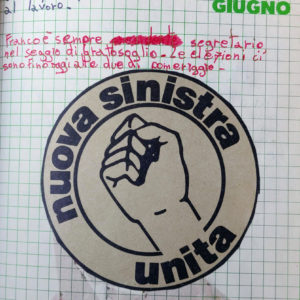 al lavoro.
GIUGNO
Franco è sempre segretario,
nel seggio di gratosoglio. Le elezioni ci
sono fino oggi alle due di pomeriggio.
nuova sinistra
unita